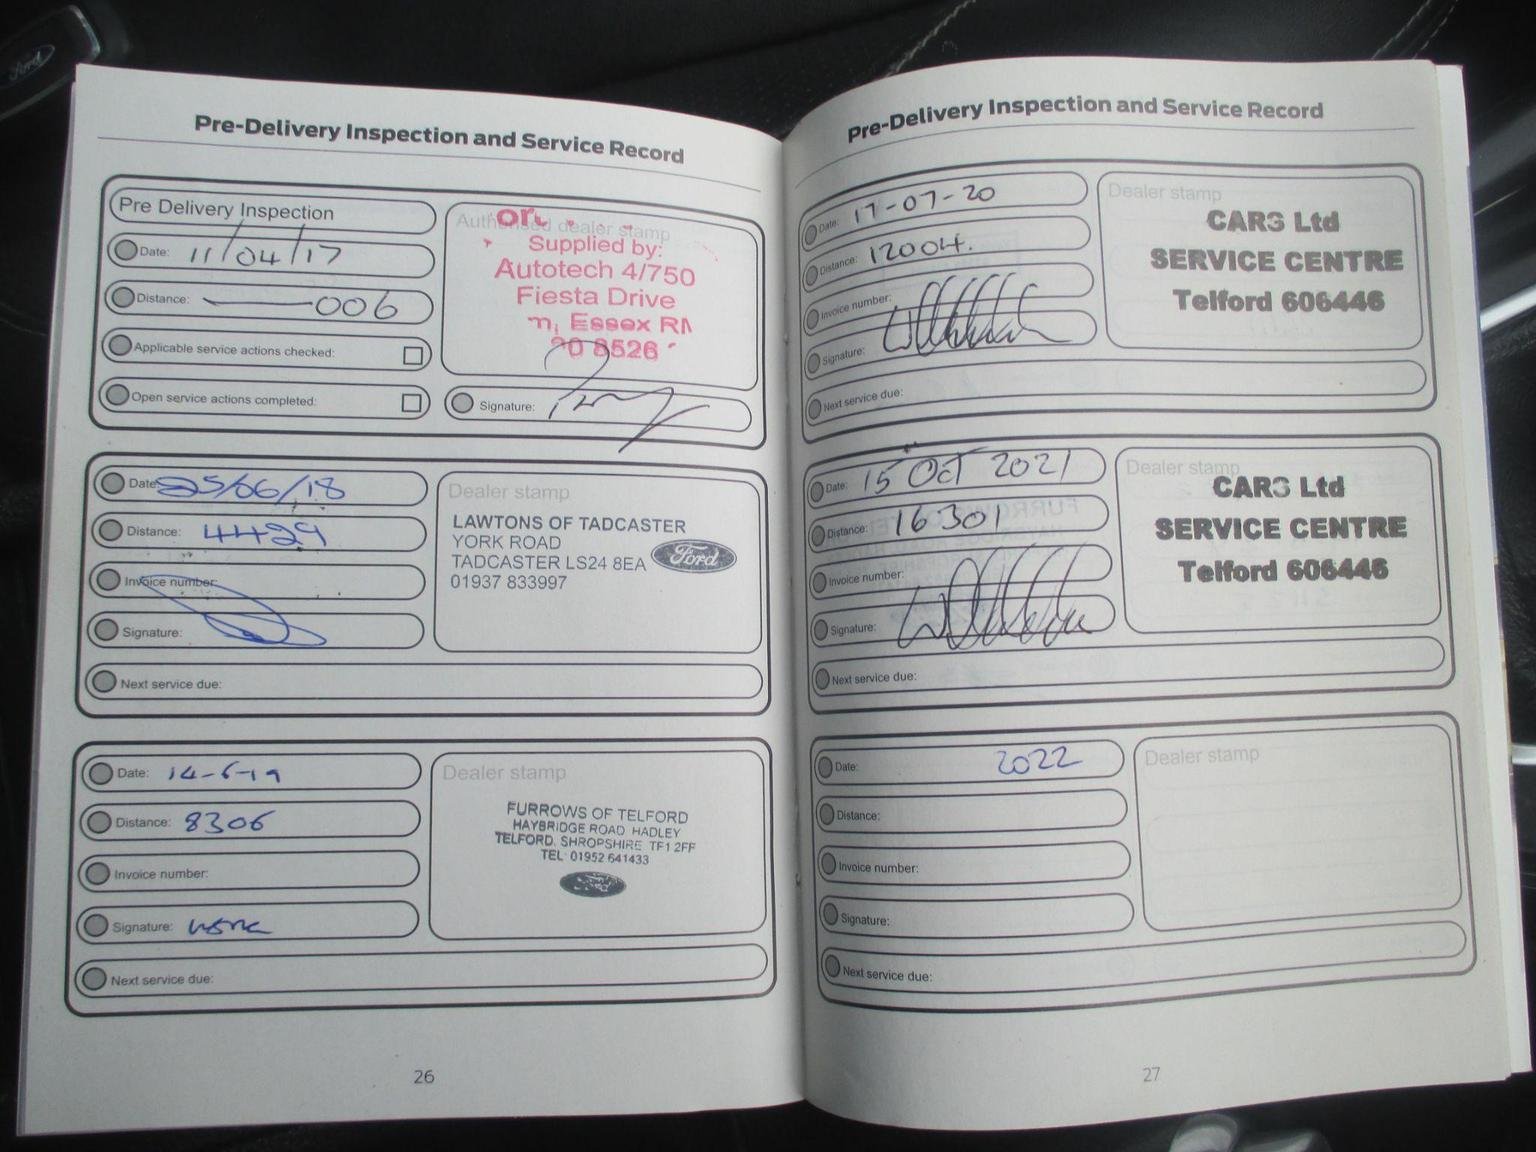 Ford
Pre-Delivery Inspection and Service Record
Pre Delivery Inspection
Date: 11/04/17
Distance: 006
Applicable service actions checked:
Open service actions completed:
Authorised dealer stamp
Supplied by:
Autotech 4/750
Fiesta Drive
Essex RM
8526
Signature:
Date: 25/06/18
Distance: 4429
Invoice number:
Signature:
Next service due:
Dealer stamp
LAWTONS OF TADCASTER
YORK ROAD
TADCASTER LS24 8EA
01937 833997
Ford
Date: 14-6-19
Distance: 8306
Invoice number:
Signature:
Next service due:
Dealer stamp
FURROWS OF TELFORD
HAYBRIDGE ROAD HADLEY
TELFORD, SHROPSHIRE TF1 2FF
TEL 01952 641433
26
Pre-Delivery Inspection and Service Record
Date: 17-07-20
Distance: 12004.
Invoice number:
Signature:
Next service due:
Dealer stamp
CARS Ltd
SERVICE CENTRE
Telford 606446
Date: 15 Oct 2021
Distance: 16301
Invoice number:
Signature:
Next service due:
Dealer stamp
CARS Ltd
SERVICE CENTRE
Telford 606446
Date: 2022
Distance:
Invoice number:
Signature:
Next service due:
Dealer stamp
27